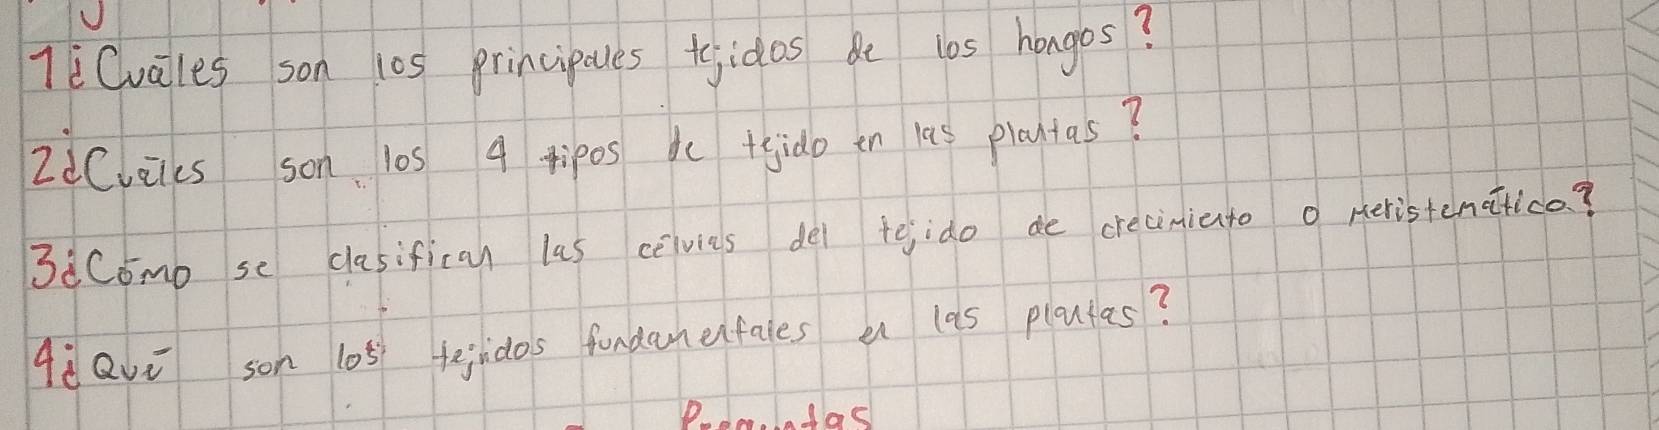 1¿Cuáles son los principales tejidos de los hongos?
2¿Cuáles son los 4 tipos de tejido en las plantas?
3¿Cómo se clasifican las células del tejido de crecimiento o meristemático?
4¿Qué son los tejidos fundamentales en las plantas?
Preguntas